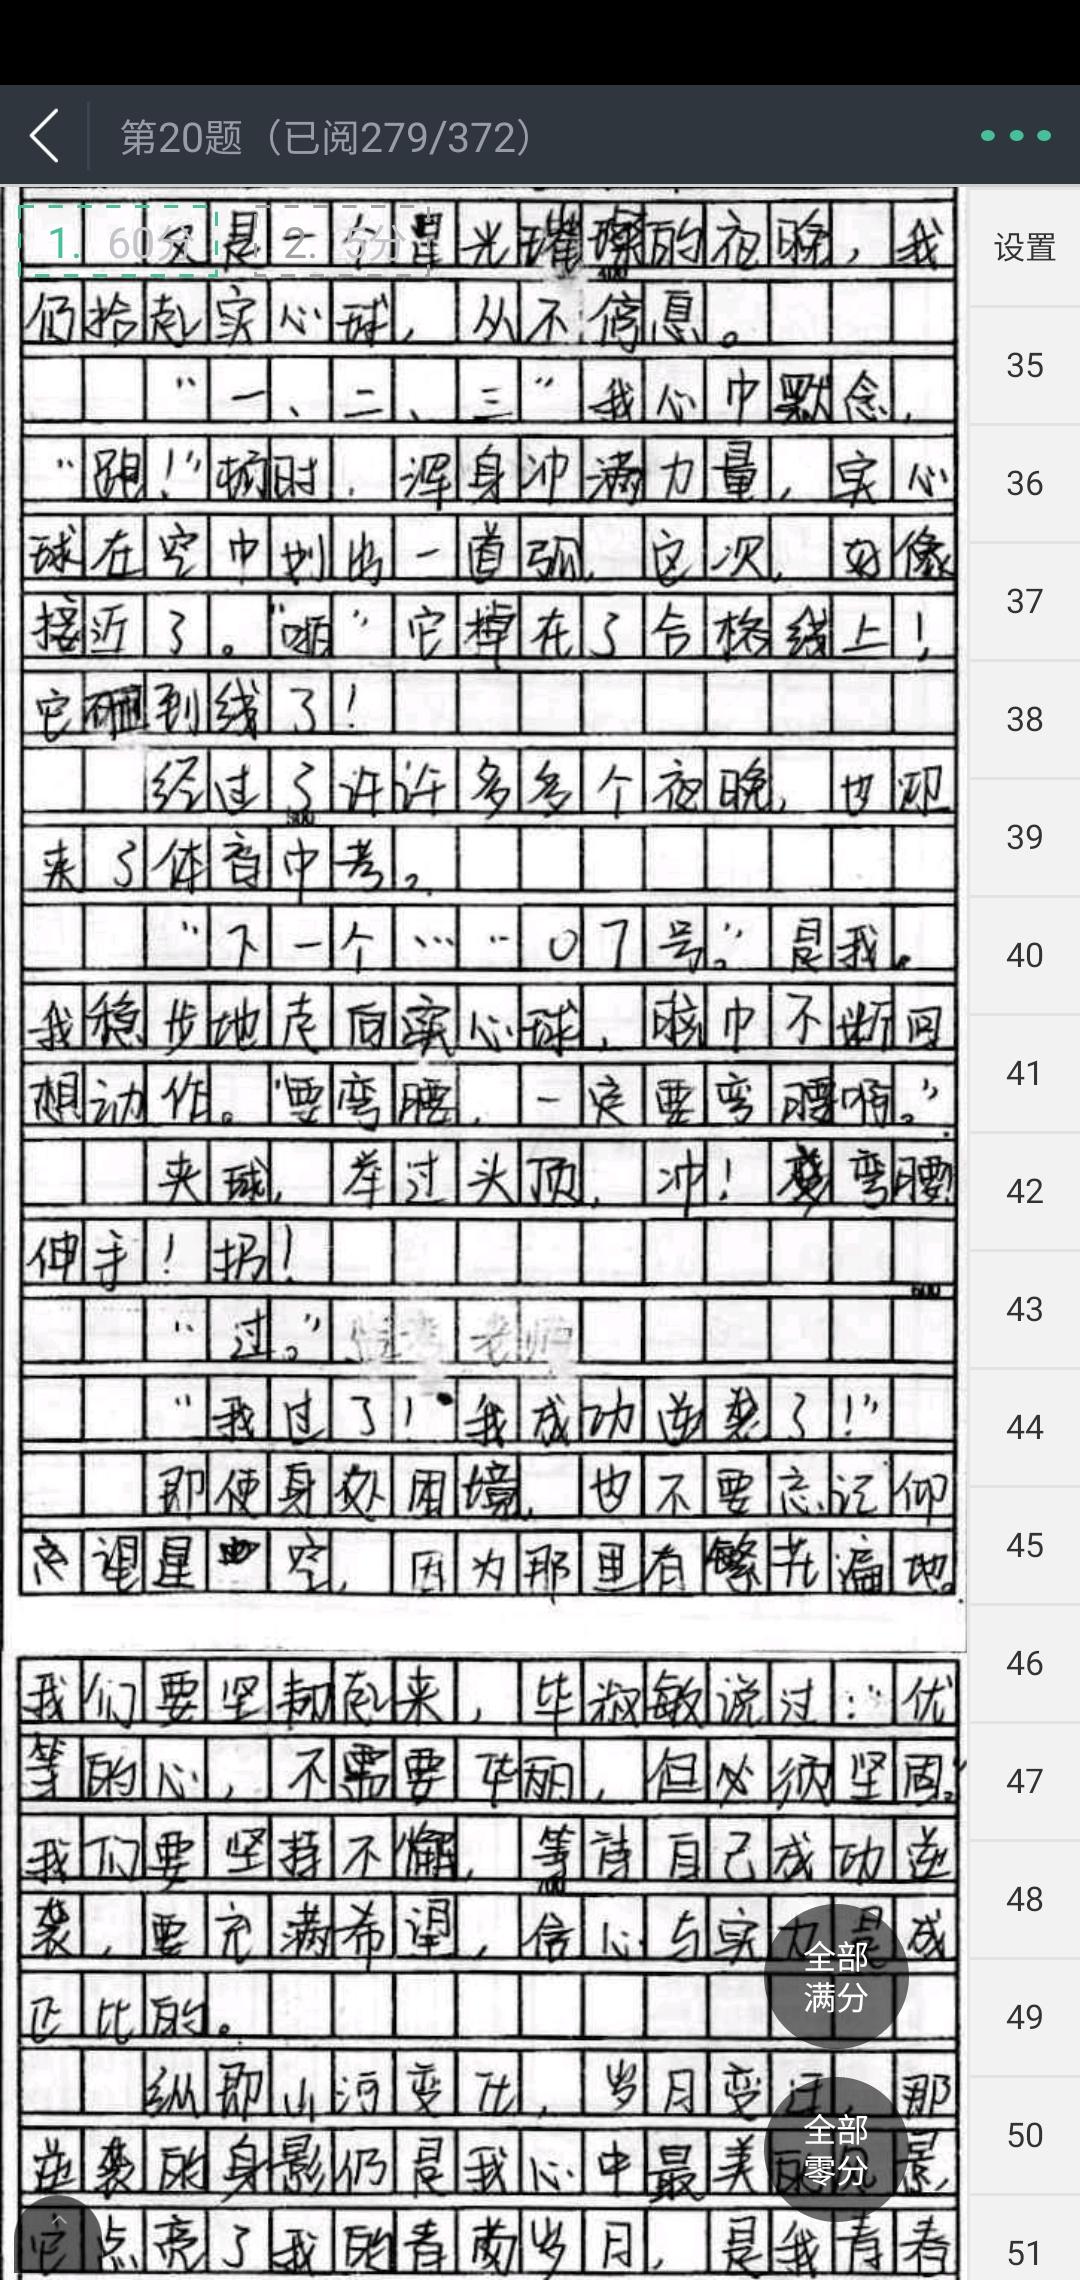 第20题（已阅279/372）
1. 60分 2. 5分
设置
35
36
37
38
39
40
41
42
43
44
45
46
47
48
49
50
51
又是一个星光璀璨的夜晚，我
400
仍拾起实心球，从不停息。
“一、二、三”我心中默念，
“跑！”顿时，浑身冲满力量，实心
球在空中划出一道弧，这次，好像
接近了。“啪”它掉在了合格线上！
它砸到线了！
经过了许许多多个夜晚，也迎
500
来了体育中考。
“下一个……07号。”是我。
我稳步地走向实心球，脑中不断回
想动作。“要弯腰，一定要弯腰啊。”
夹球，举过头顶，冲！弯腰！
伸手！扔！
600
“过。”
“我过了！我成功逆袭了！”
即使身处困境，也不要忘记仰
望星空，因为那里有繁花遍地。
我们要坚韧起来，毕淑敏说过：“优
等的心，不需要华丽，但必须坚固。”
我们要坚持不懈，等待自己成功逆
700
袭，要充满希望，信心与实力是成
正比的。
纵即山河变化，岁月变迁，那
逆袭的身影仍是我心中最美的风景，
它点亮了我的青葱岁月，是我青春
全部
满分
全部
零分